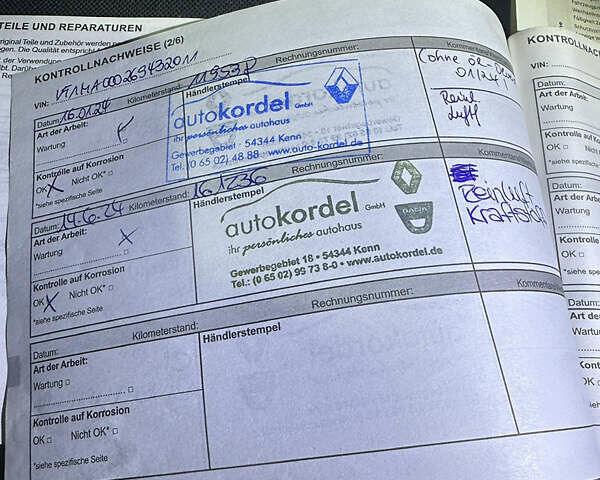 TEILE UND REPARATUREN
KONTROLLNACHWEISE (2/6)
VIN:
Datum: 16.01.24 Kilometerstand: Rechnungsnummer: Kommentar
Art der Arbeit:
Wartung
Kontrolle auf Korrosion
OK X Nicht OK* □
*siehe spezifische Seite
Händlerstempel
autokordel GmbH
ihr persönliches autohaus
Gewerbegebiet · 54344 Kenn
Tel. (0 65 02) 48 88 www.auto-kordel.de
(ohne
01/24)
Luftf
Datum: 14.6.24 Kilometerstand: 161236 Rechnungsnummer: Kommentar
Art der Arbeit:
Wartung □
Kontrolle auf Korrosion
OK X Nicht OK* □
*siehe spezifische Seite
Händlerstempel
autokordel GmbH
ihr persönliches autohaus
Gewerbegebiet 18 • 54344 Kenn
Tel.: (0 65 02) 99 73 8-0 • www.autokordel.de
DACIA
Kraftstoff
Datum: Kilometerstand: Rechnungsnummer: Kommentar
Art der Arbeit:
Wartung □
Kontrolle auf Korrosion
OK □ Nicht OK* □
*siehe spezifische Seite
Händlerstempel
KONTROLLNACH
VIN:
Datum:
Art der Arbeit:
Wartung
Kontrolle a
OK □ N
*siehe spez
Datum:
Art der
Wartung
Kontro
OK □
*siehe
Datu
Art d
Wart
Kont
OK □